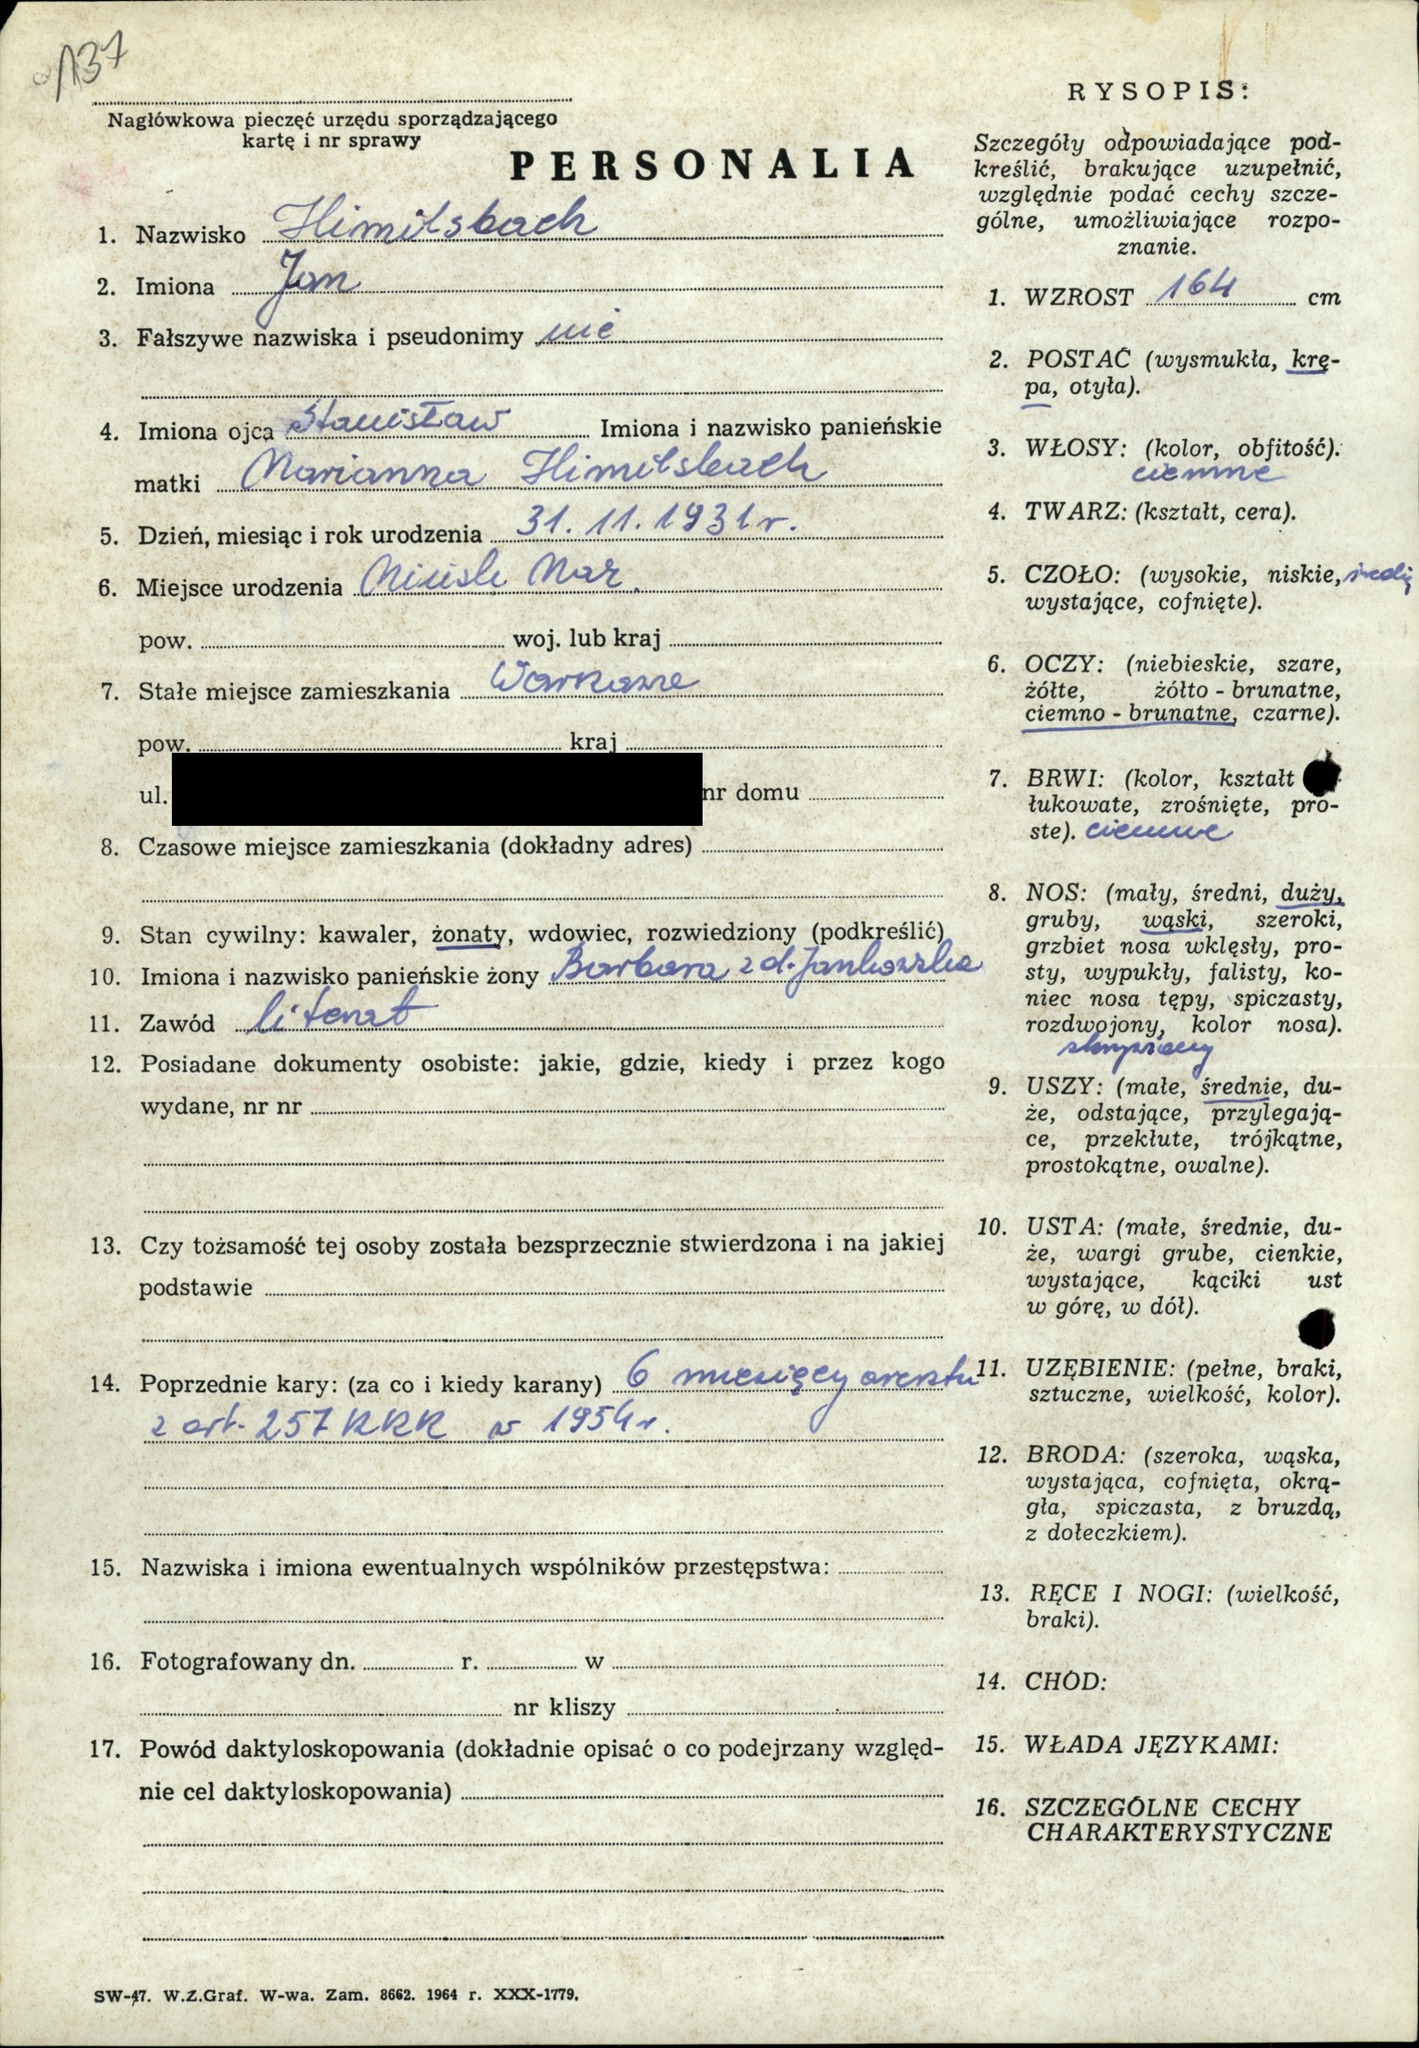 137
Nagłówkowa pieczęć urzędu sporządzającego
kartę i nr sprawy
PERSONALIA
1. Nazwisko Himilsbach
2. Imiona Jan
3. Fałszywe nazwiska i pseudonimy nie
4. Imiona ojca Stanisław Imiona i nazwisko panieńskie
matki Marianna Himilsbach
5. Dzień, miesiąc i rok urodzenia 31.11.1931 r.
6. Miejsce urodzenia Mińsk Maz.
pow. woj. lub kraj
7. Stałe miejsce zamieszkania Warszawa
pow. kraj
ul. nr domu
8. Czasowe miejsce zamieszkania (dokładny adres)
9. Stan cywilny: kawaler, żonaty, wdowiec, rozwiedziony (podkreślić)
10. Imiona i nazwisko panieńskie żony Barbara z d. Jankowska
11. Zawód literat
12. Posiadane dokumenty osobiste: jakie, gdzie, kiedy i przez kogo
wydane, nr nr
13. Czy tożsamość tej osoby została bezsprzecznie stwierdzona i na jakiej
podstawie
14. Poprzednie kary: (za co i kiedy karany) 6 miesięcy aresztu
z art. 257 KKK w 1954 r.
15. Nazwiska i imiona ewentualnych wspólników przestępstwa:
16. Fotografowany dn. r. w
nr kliszy
17. Powód daktyloskopowania (dokładnie opisać o co podejrzany względ-
nie cel daktyloskopowania)
SW-47. W.Z.Graf. W-wa. Zam. 8662. 1964 r. XXX-1779.
RYSOPIS:
Szczegóły odpowiadające pod-
kreślić, brakujące uzupełnić,
względnie podać cechy szcze-
gólne, umożliwiające rozpo-
znanie.
1. WZROST 164 cm
2. POSTAĆ (wysmukła, krę-
pa, otyła).
3. WŁOSY: (kolor, obfitość).
ciemne
4. TWARZ: (kształt, cera).
5. CZOŁO: (wysokie, niskie,
wystające, cofnięte).
6. OCZY: (niebieskie, szare,
żółte, żółto - brunatne,
ciemno - brunatne, czarne).
7. BRWI: (kolor, kształt
łukowate, zrośnięte, pro-
ste). ciemne
8. NOS: (mały, średni, duży,
gruby, wąski, szeroki,
grzbiet nosa wklęsły, pro-
sty, wypukły, falisty, ko-
niec nosa tępy, spiczasty,
rozdwojony, kolor nosa).
9. USZY: (małe, średnie, du-
że, odstające, przylegają-
ce, przekłute, trójkątne,
prostokątne, owalne).
10. USTA: (małe, średnie, du-
że, wargi grube, cienkie,
wystające, kąciki ust
w górę, w dół).
11. UZĘBIENIE: (pełne, braki,
sztuczne, wielkość, kolor).
12. BRODA: (szeroka, wąska,
wystająca, cofnięta, okrą-
gła, spiczasta, z bruzdą,
z dołeczkiem).
13. RĘCE I NOGI: (wielkość,
braki).
14. CHÓD:
15. WŁADA JĘZYKAMI:
16. SZCZEGÓLNE CECHY
CHARAKTERYSTYCZNE